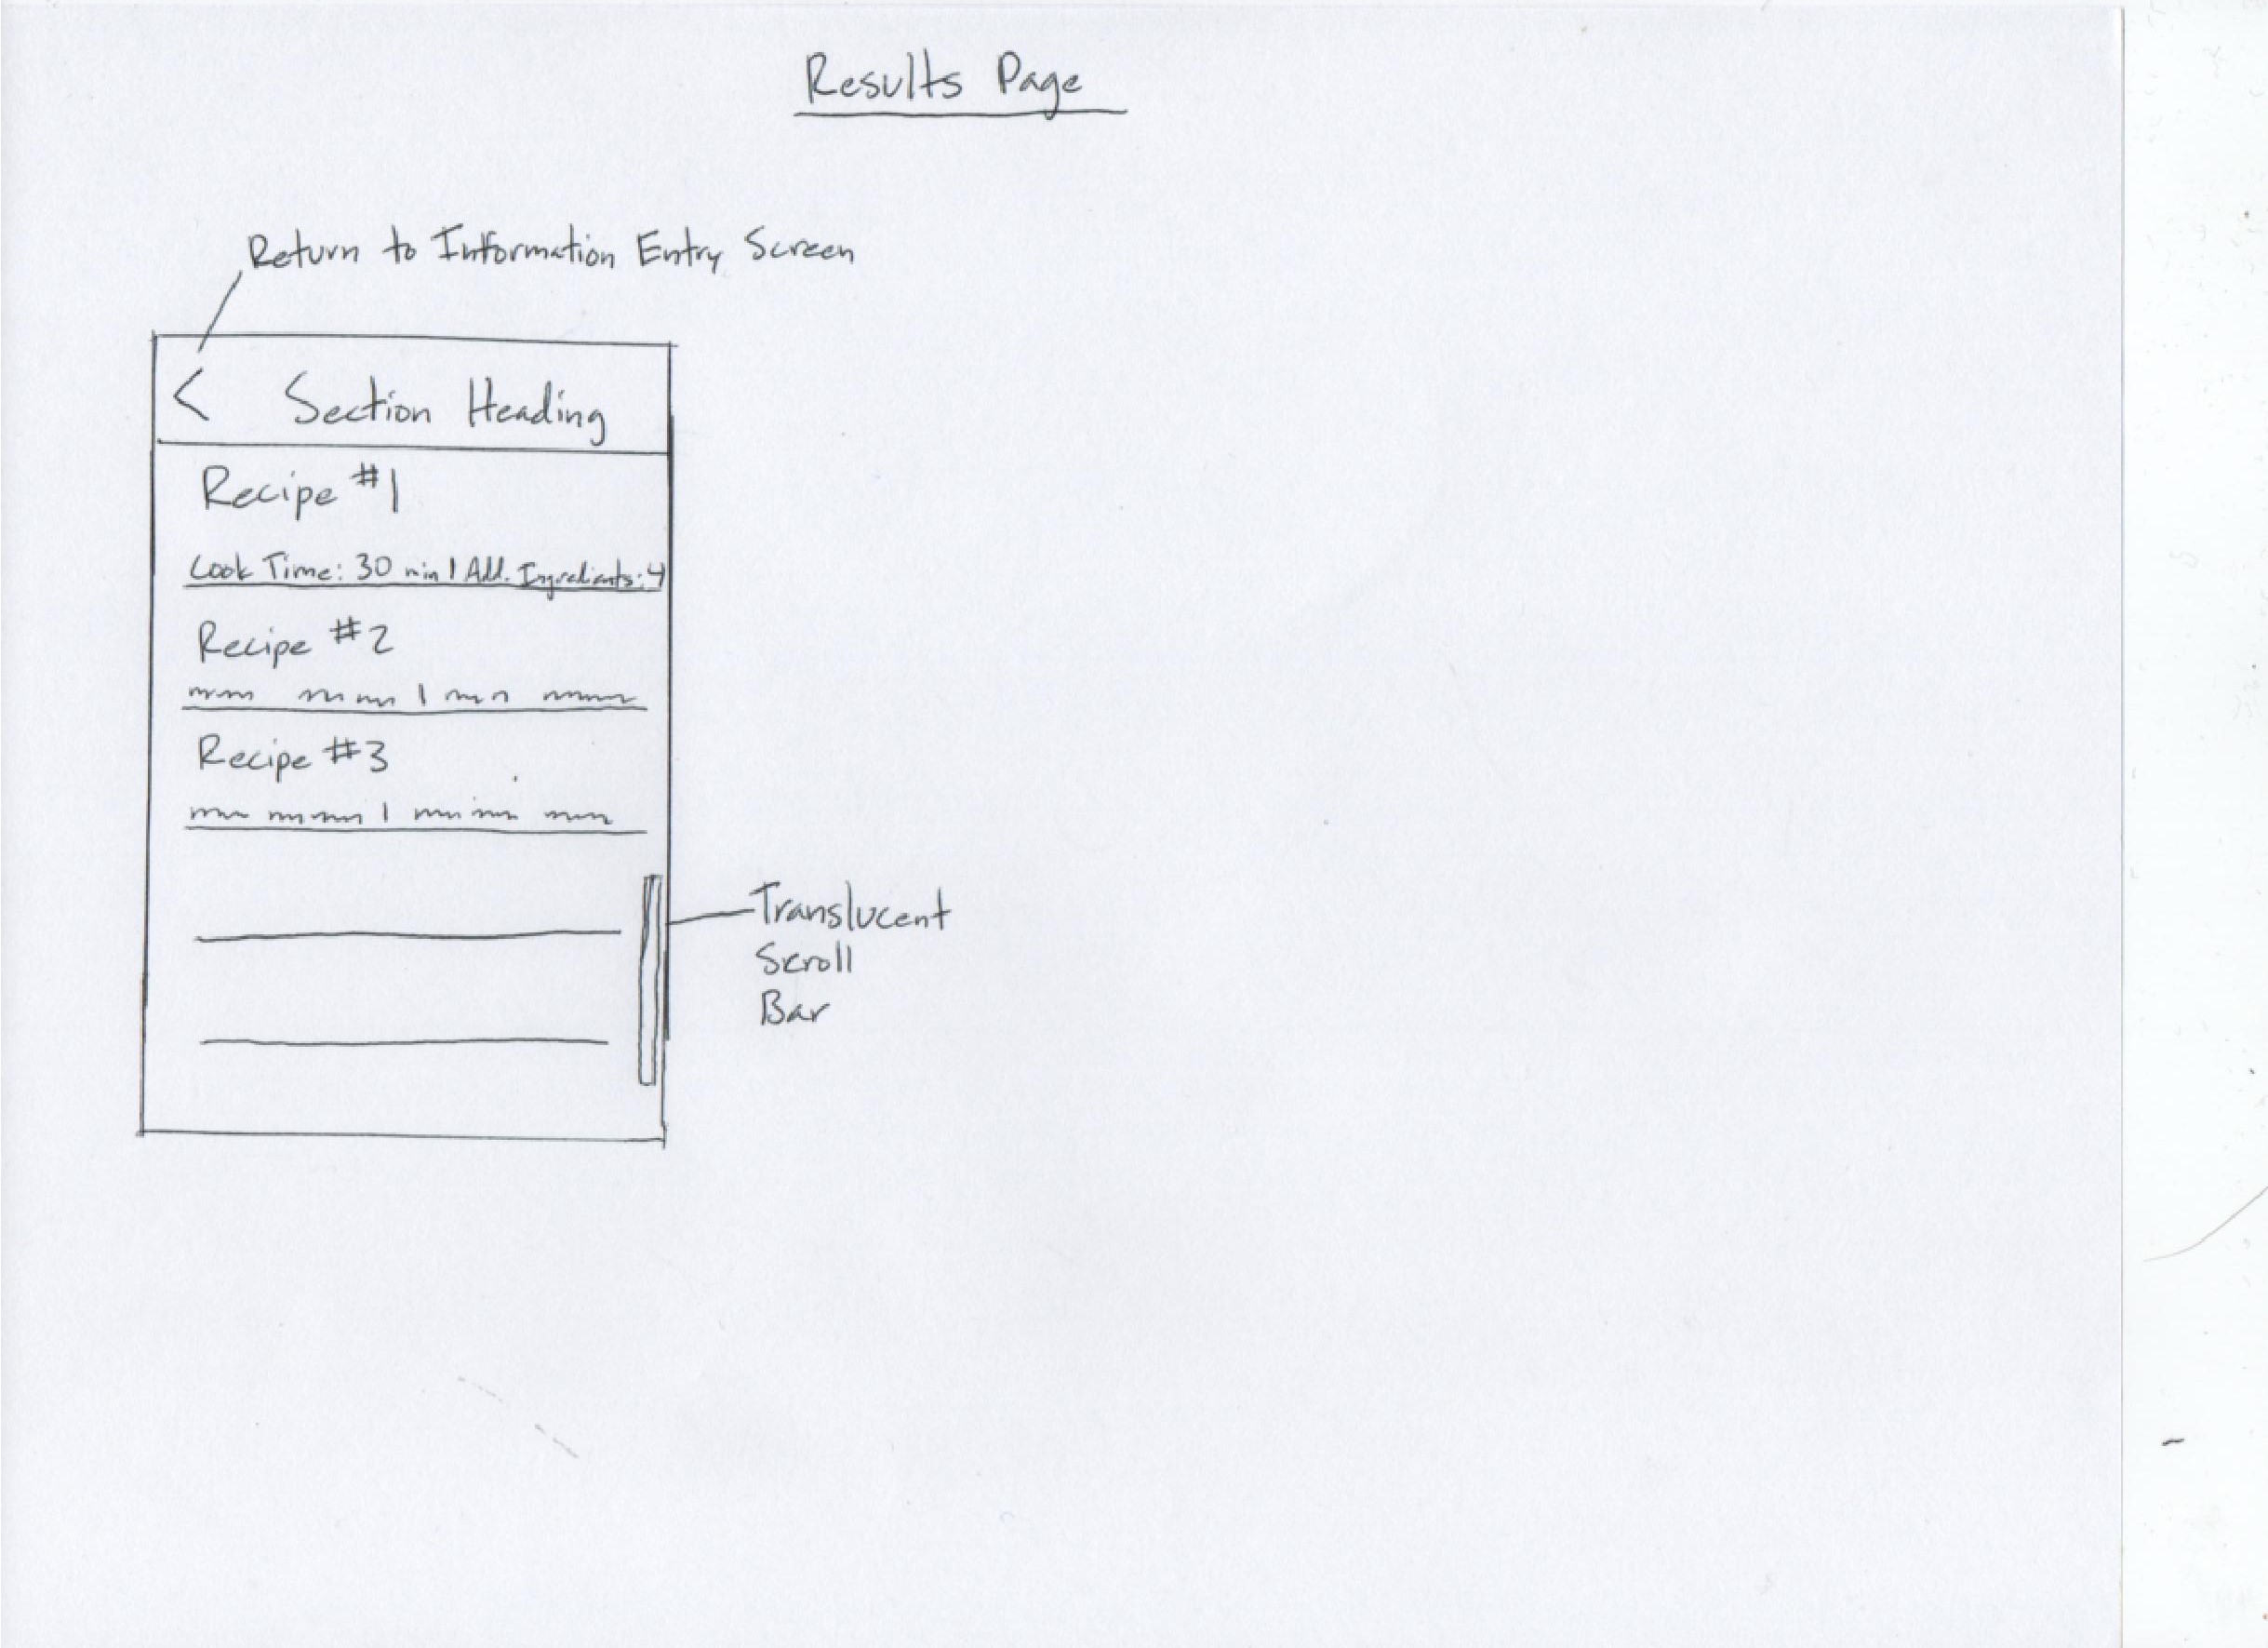 Results Page
Return to Information Entry Screen
< Section Heading
Recipe #1
Cook Time: 30 min | Add. Ingredients: 4
Recipe #2
Recipe #3
Translucent
Scroll
Bar